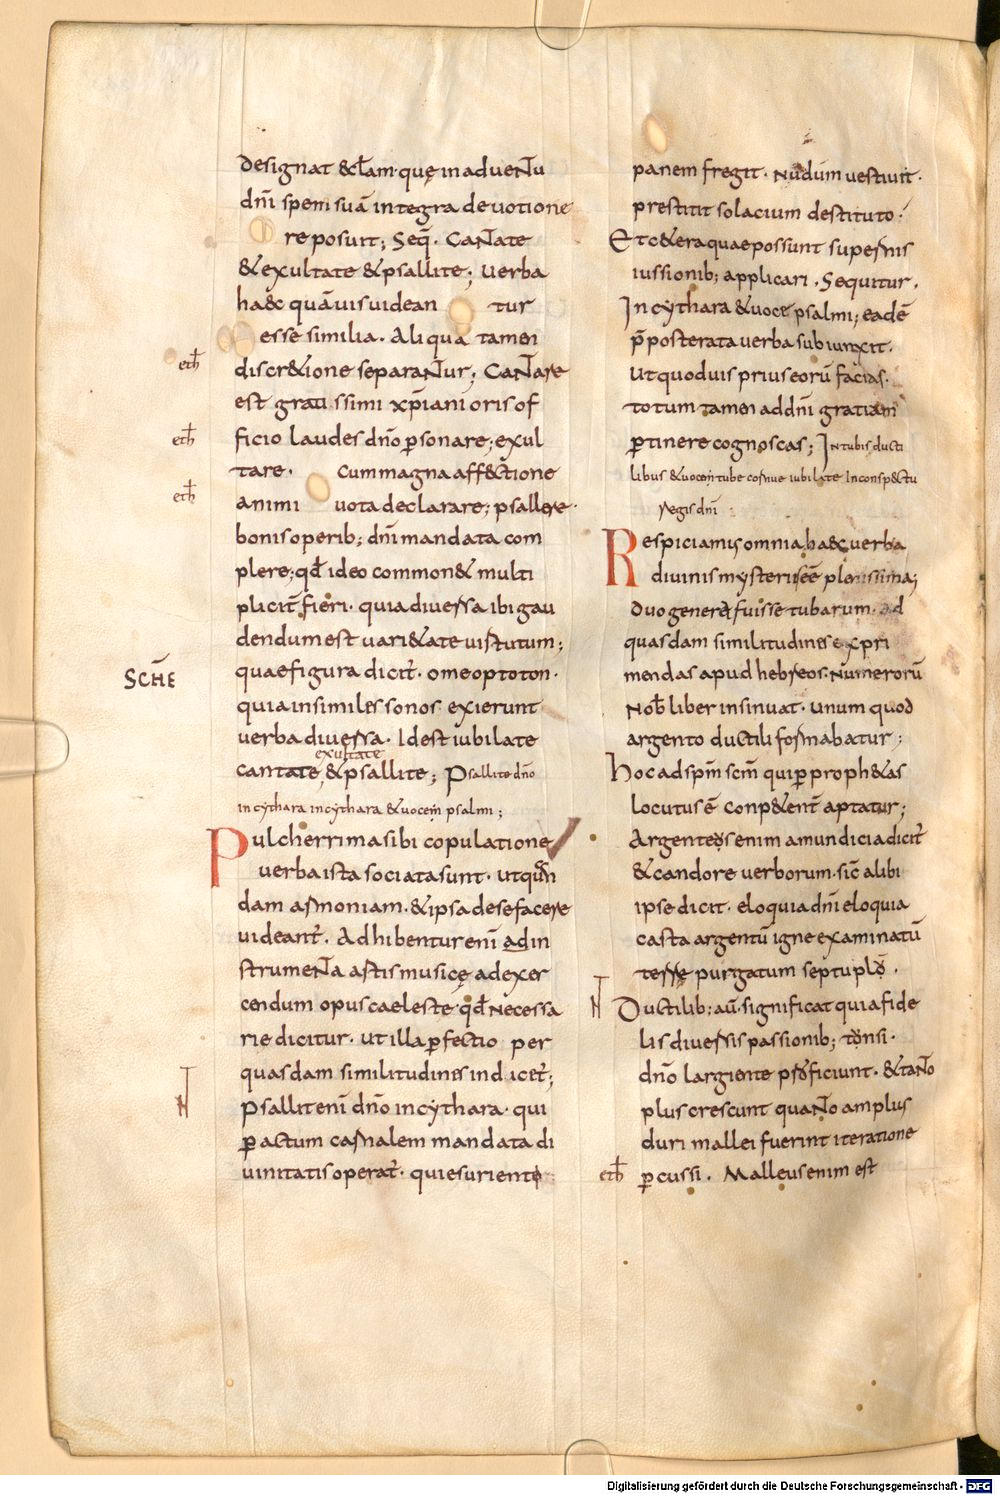 designat & ecłam· quę in aduentu
dñi spem suā integra deuotione
reposuit; Seq̄. Cantate
& exultate & psallite; Uerba
haec quāuis uidean tur
esse similia. Aliqua tamen
eth̄
discr&ione separantur; Cantare
est grati ssimi xp̄iani oris of
eth̄
ficio laudes dño ꝑsonare; exul
tare. Cum magna affectione
eth̄
animi uota declarare; psallere·
bonis operib; dñi mandata com
plere; qđ ideo common& multi
plicit̄ fieri· quia diuersa ibi gau
dendum est uari&ate uirtutum;
SCHE
quae figura dicit̄· omeoptoton·
quia in similes sonos exierunt
uerba diuersa· Idest iubilate
exultate
cantate & psallite; Psallite dño
in cythara in cythara & uocem psalmi;
Pulcherrima sibi copulatione
uerba ista sociata sunt· ut quan
dam armoniam· & ipsa de se facere
uideant̄. Adhibentur enī ad in
strumenta artis musicę ad exer
cendum opus caeleste· qđ necessa
rie dicitur· ut illa ꝑfectio per
quasdam similitudines indicet̄;
Psallit enī dño in cythara· qui
ꝑ actum carnalem mandata di
uinitatis operat̄· qui esuriente
panem fregit· nudum uestiuit·
prestitit solacium destituto·
Et c&era quae possunt supernis
iussionib; applicari. Sequitur.
In cythara & uoce psalmi; eadē
p̄postera ta uerba subiunxit·
Ut quod uis prius eorū facias·
totum tamen ad dñi gratiam
ꝑtinere cognoscas; In tubis ducti
libus & uocem tube cornue iubilate In conspectu
regis dñi
Respiciamus omnia haec uerba
diuinis mysteriis eē plenissima;
duo genera fuisse tubarum· ad
quasdam similitudines expri
mendas apud hebreos· Numerorū
nob̄ liber insinuat· unum quod
argento ductili formabatur;
Hoc ad sp̄m sc̄m qui ꝑ proph&as
locutus ē conp&ent̄ aptatur;
Argenteos enim a mundicia dicit̄
& candore uerborum· sic̄ alibi
ipse dicit· eloquia dñi eloquia
casta argentū igne examinatū
terre purgatum septuplo.
Ductilib; aū· significat quia fide
lis diuersis passionib; tonsi·
dño largiente proficiunt· & tanto
plus crescunt quanto amplus
duri mallei fuerint iteratione
eth̄
ꝑcussi. Malleus enim est
Digitalisierung gefördert durch die Deutsche Forschungsgemeinschaft - DFG